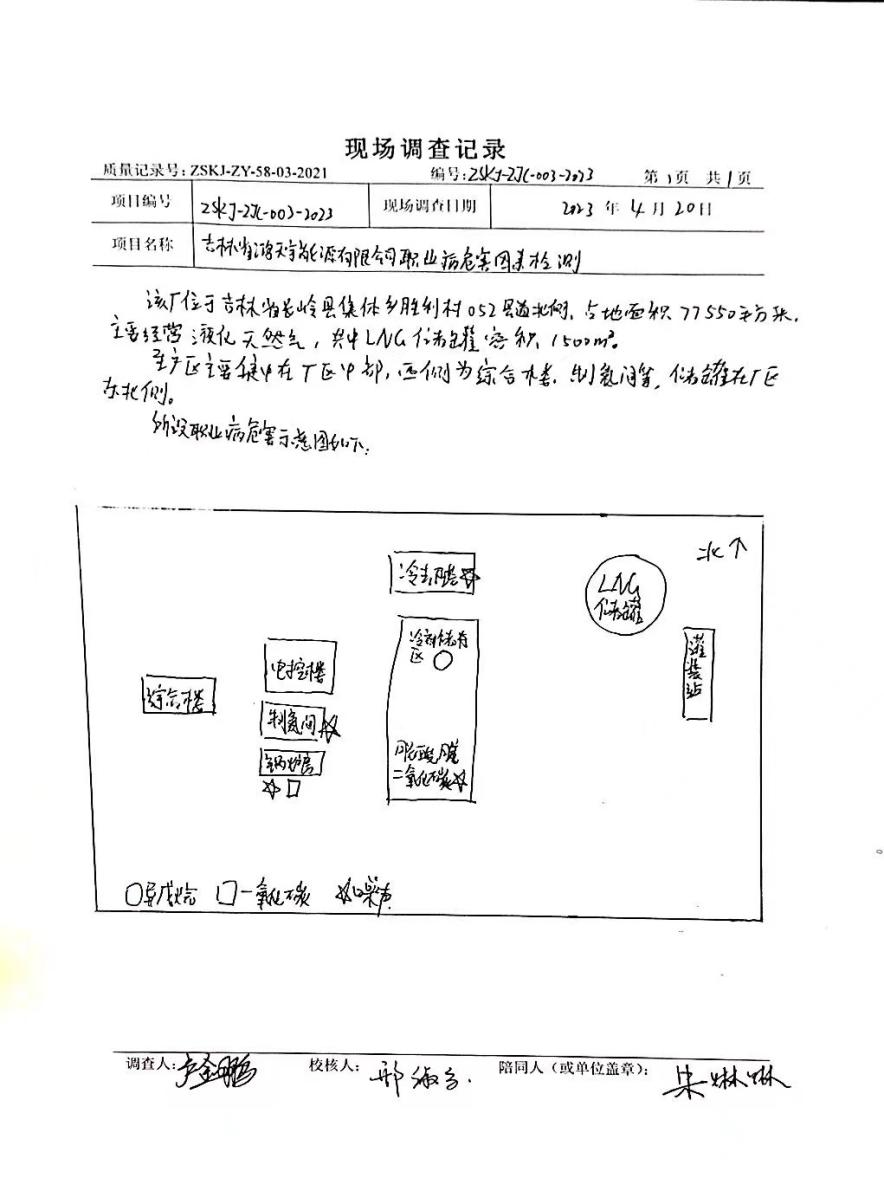 现场调查记录
质量记录号: ZSKJ-ZY-58-03-2021 编号:ZSKJ-ZJC-003-2023 第1页 共1页
项目编号 ZSKJ-ZJC-003-2023 现场调查日期 2023年4月20日
项目名称 吉林省鸿天宇能源有限公司职业病危害因素检测
该厂位于吉林省长岭县集体乡胜利村052县道北侧,占地面积77550平方米,
主要经营液化天然气,其中LNG储罐容积1500m³。
生产区主要集中在厂区中部,西侧为综合楼、制氮间等,储罐在厂区
东北侧。
职业病危害示意图如下:
北↑
冷却塔
LNG
储罐
冷剂储存
区
电控楼
灌装站
综合楼
制氮间
脱酸脱
锅炉房
二氧化碳
异戊烷 一氧化碳 噪声
调查人: 校核人: 邢 陪同人(或单位盖章): 朱琳琳